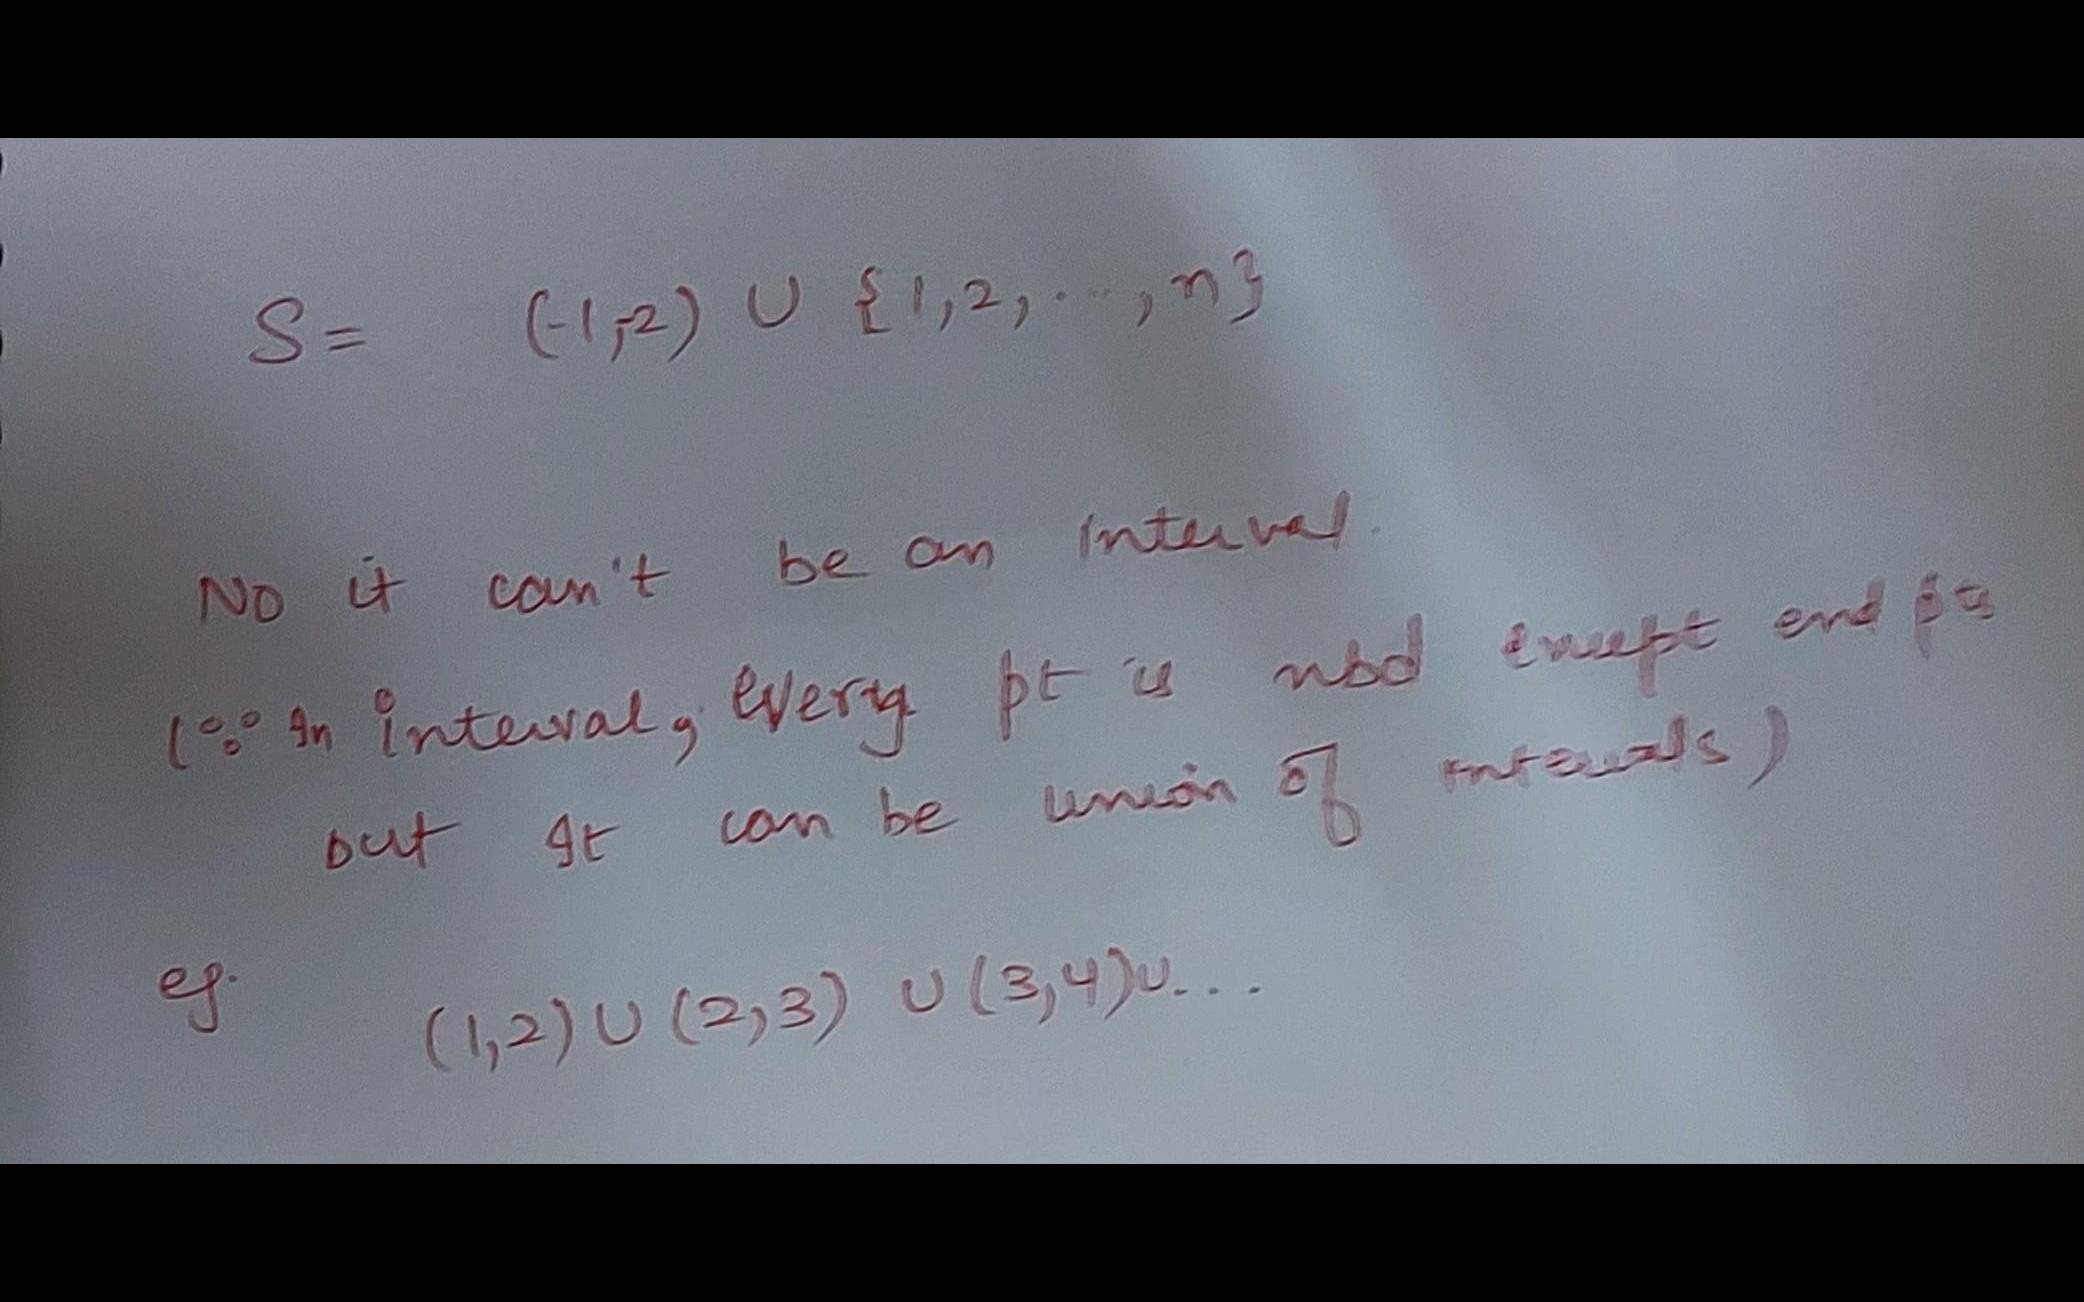 S = (-1,-2) ∪ {1,2,...,n}
No it can't be an interval.
(∵ In interval, every pt is nbd except end pts
but It can be union of intervals)
eg. (1,2) ∪ (2,3) ∪ (3,4) ∪ ...